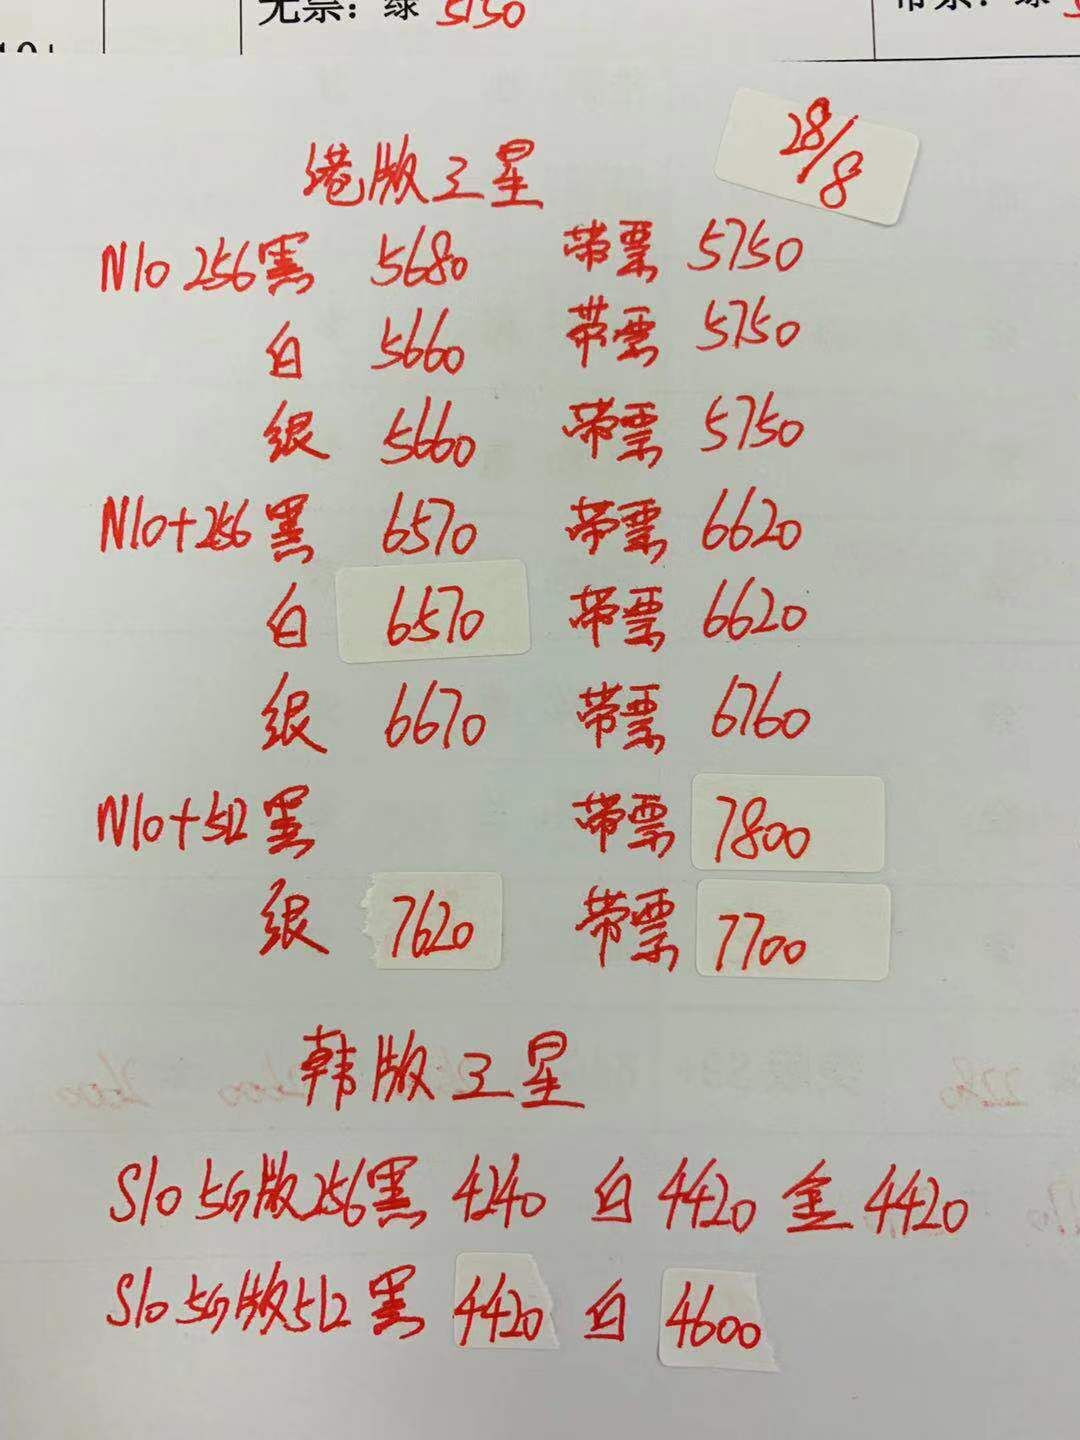 无票：绿 5150
港版三星 28/8
N10 256黑 5680 带票 5750
白 5660 带票 5750
银 5660 带票 5750
N10+256 黑 6570 带票 6620
白 6570 带票 6620
银 6670 带票 6760
N10+512 黑 带票 7800
银 7620 带票 7700
韩版三星
S10 5G版256黑 4240 白 4420 金 4420
S10 5G版512 黑 4420 白 4600